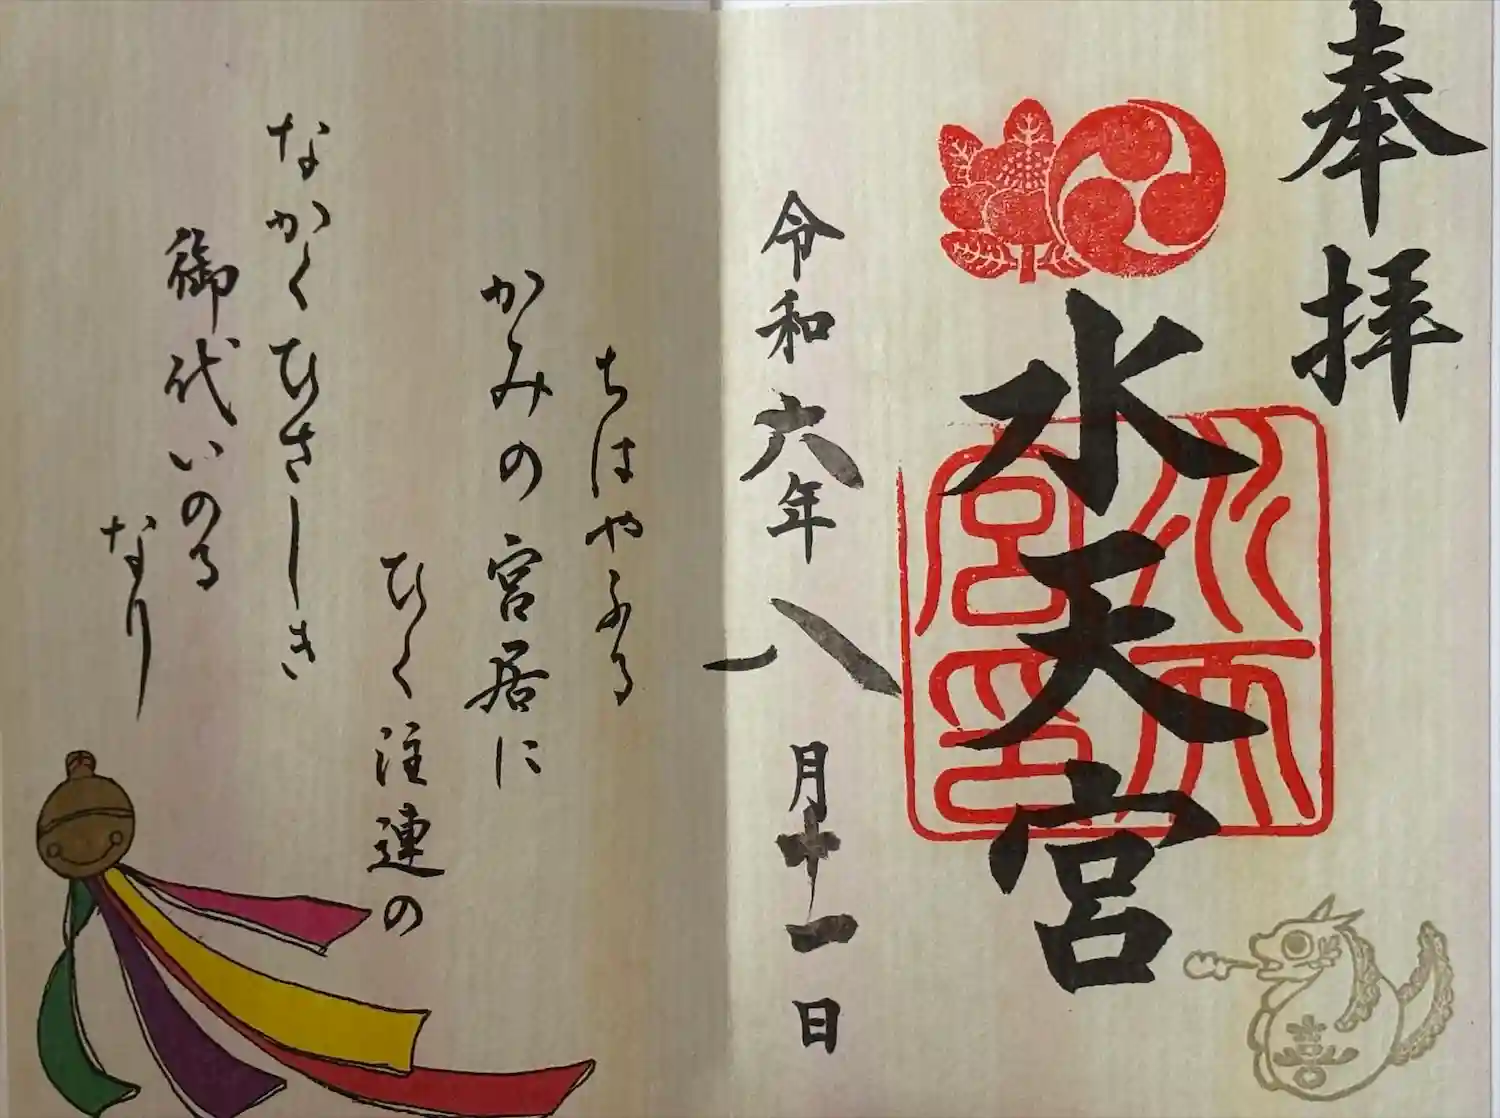 奉拝
水天宮
水天宮印
令和六年八月十一日
ちはやふる
かみの宮居に
ひく注連の
なかくひさしき
御代いのる
なり